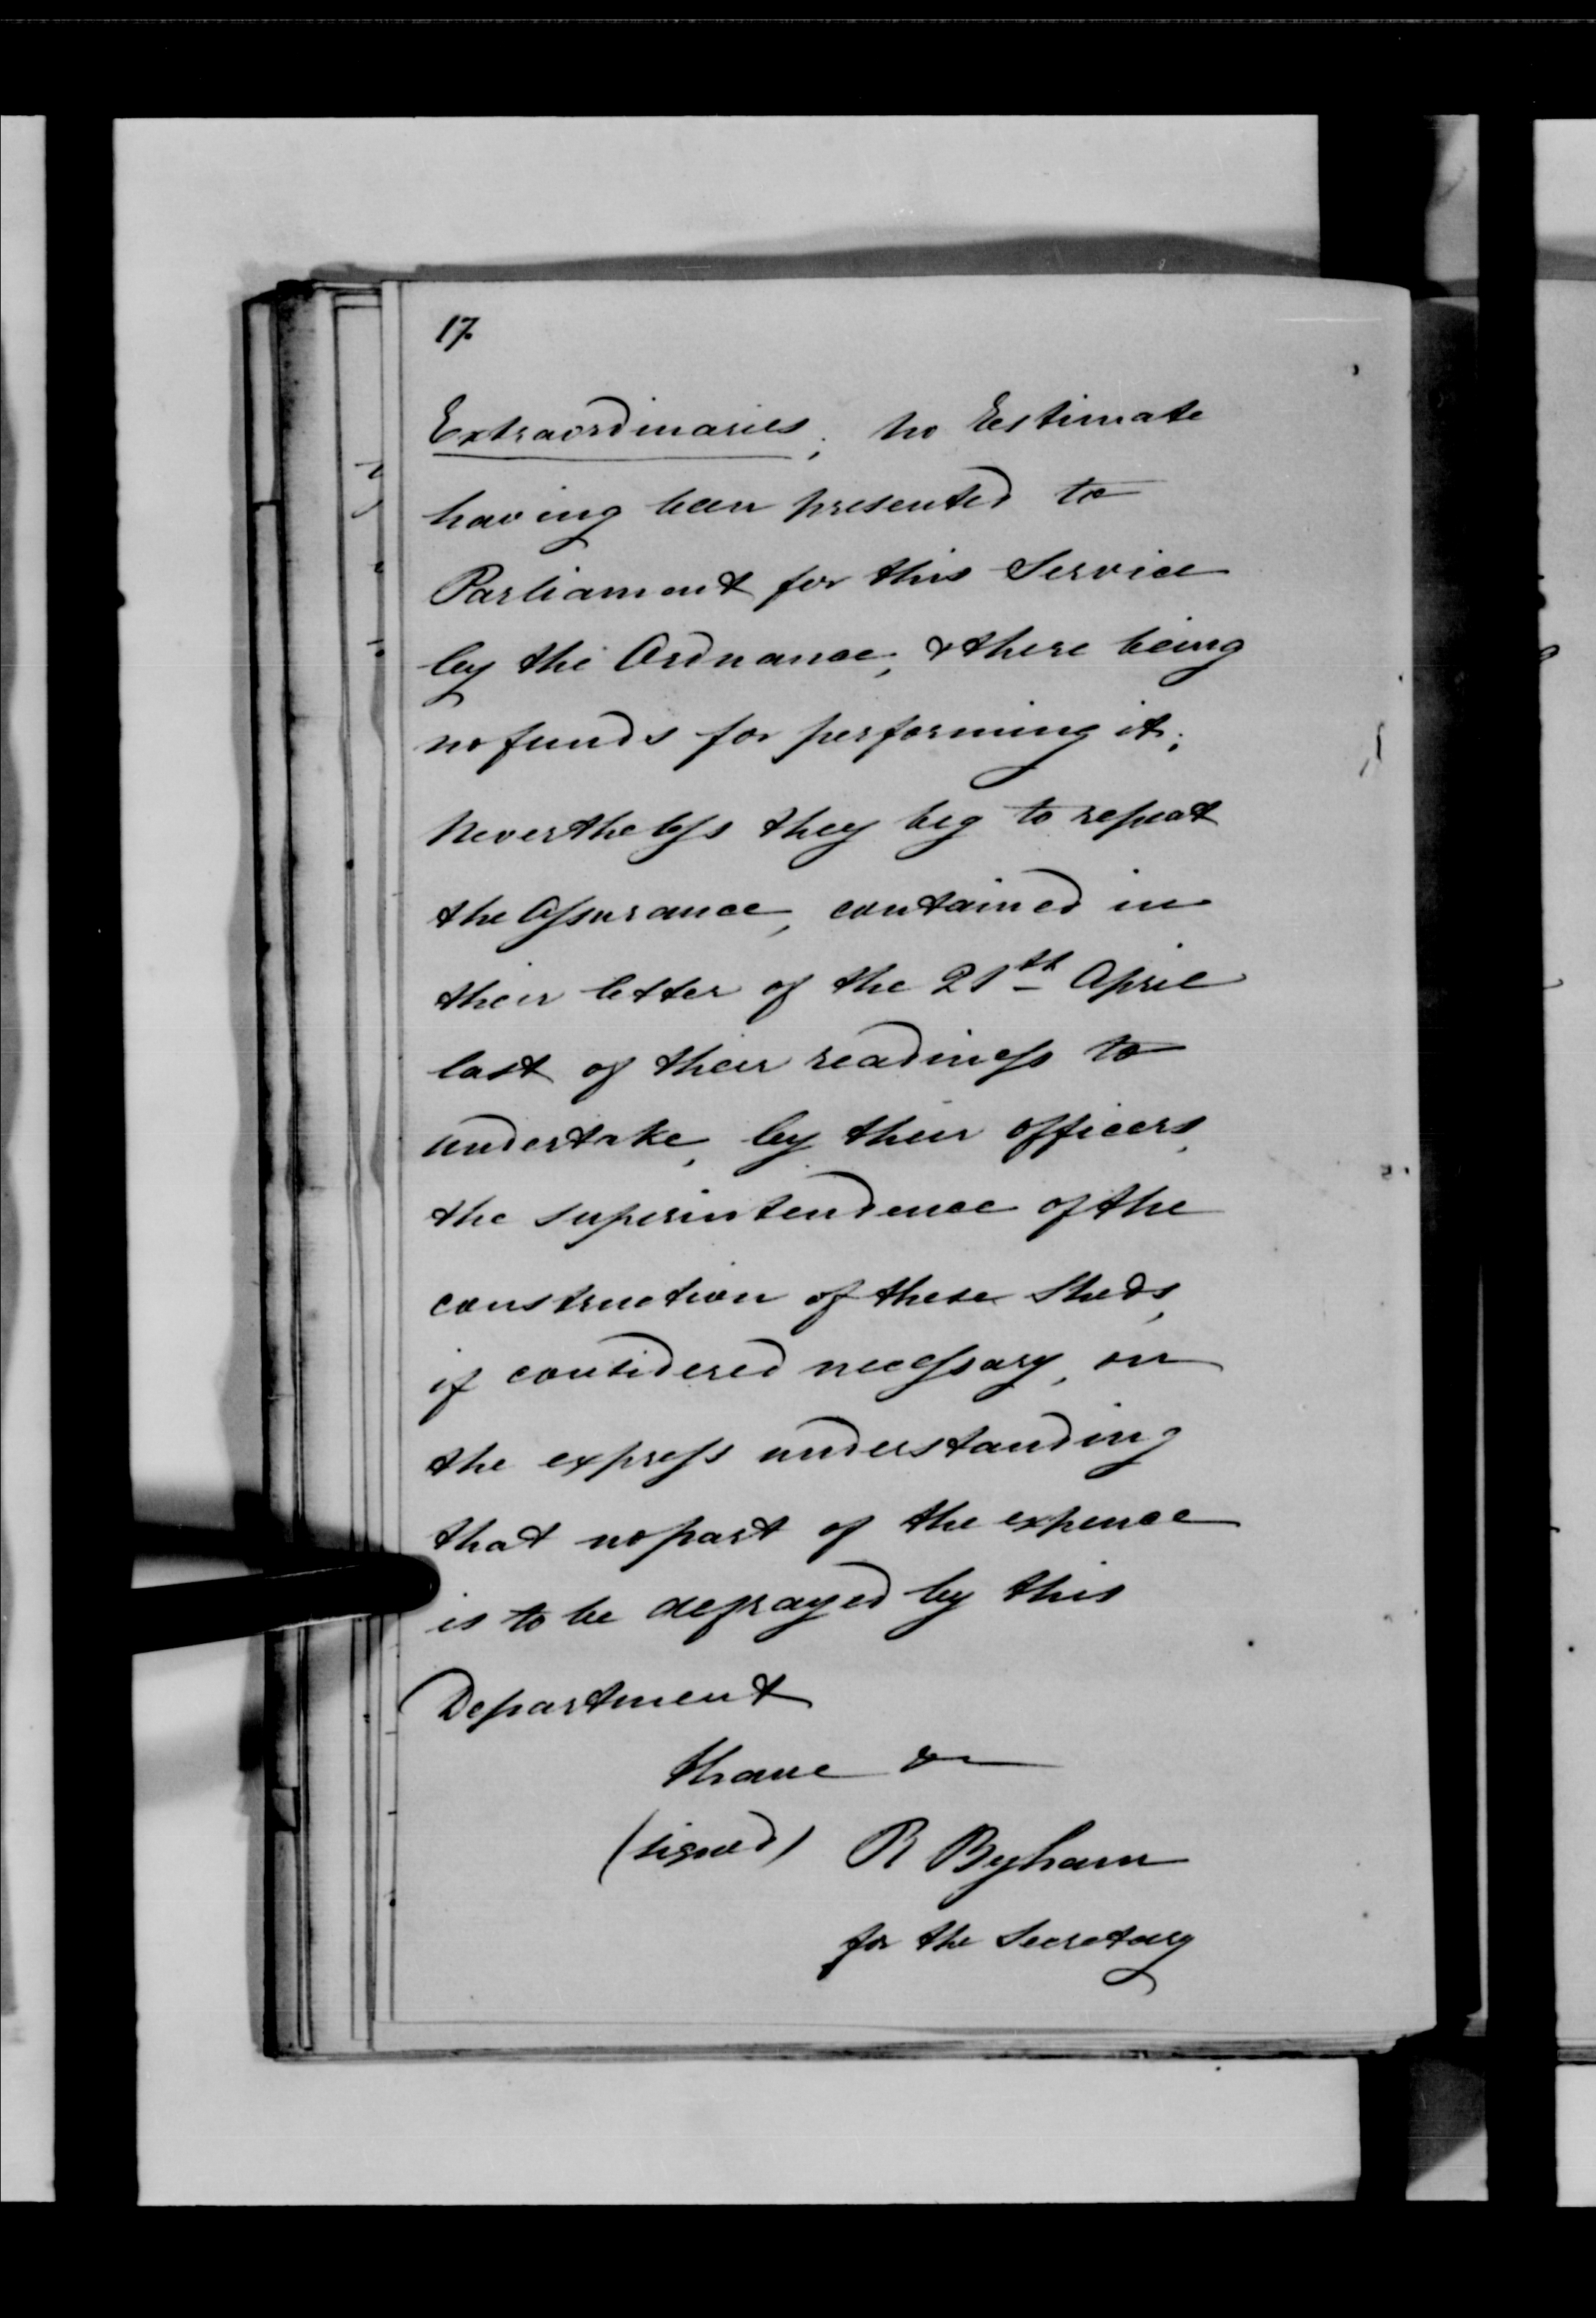 17.
Extraordinaries; no Estimate
having been presented to
Parliament for this Service
by the Ordnance; & there being
no funds for performing it;
Nevertheless they beg to repeat
the Assurance, contained in
their letter of the 21th April
last of their readiness to
undertake, by their officers,
the superintendence of the
construction of these Sheds,
if considered necessary, on
the express understanding
that no part of the expence
is to be defrayed by this
Department
I have &c
(signed) R Byham
for the Secretary